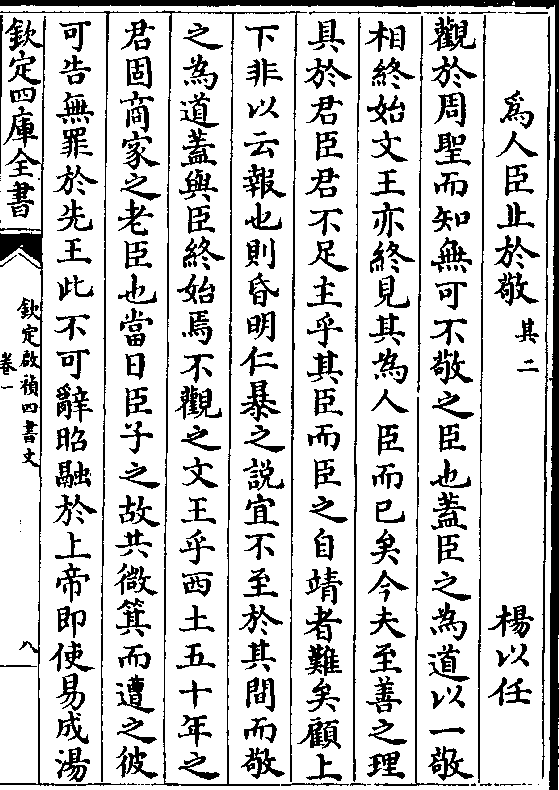 為人臣止於敬 其二 楊以任
觀於周聖而知無可不敬之臣也蓋臣之為道以一敬
相終始文王亦終見其為人臣而已矣今夫至善之理
具於君臣君不足主乎其臣而臣之自靖者難矣顧上
下非以云報也則昏明仁暴之說宜不至於其間而敬
之為道蓋與臣終始焉不觀之文王乎西土五十年之
君固商家之老臣也當日臣子之故共微箕而遭之彼
可告無罪於先王此不可辭昭融於上帝即使易成湯
欽定四庫全書
欽定啟禎四書文
卷一
八